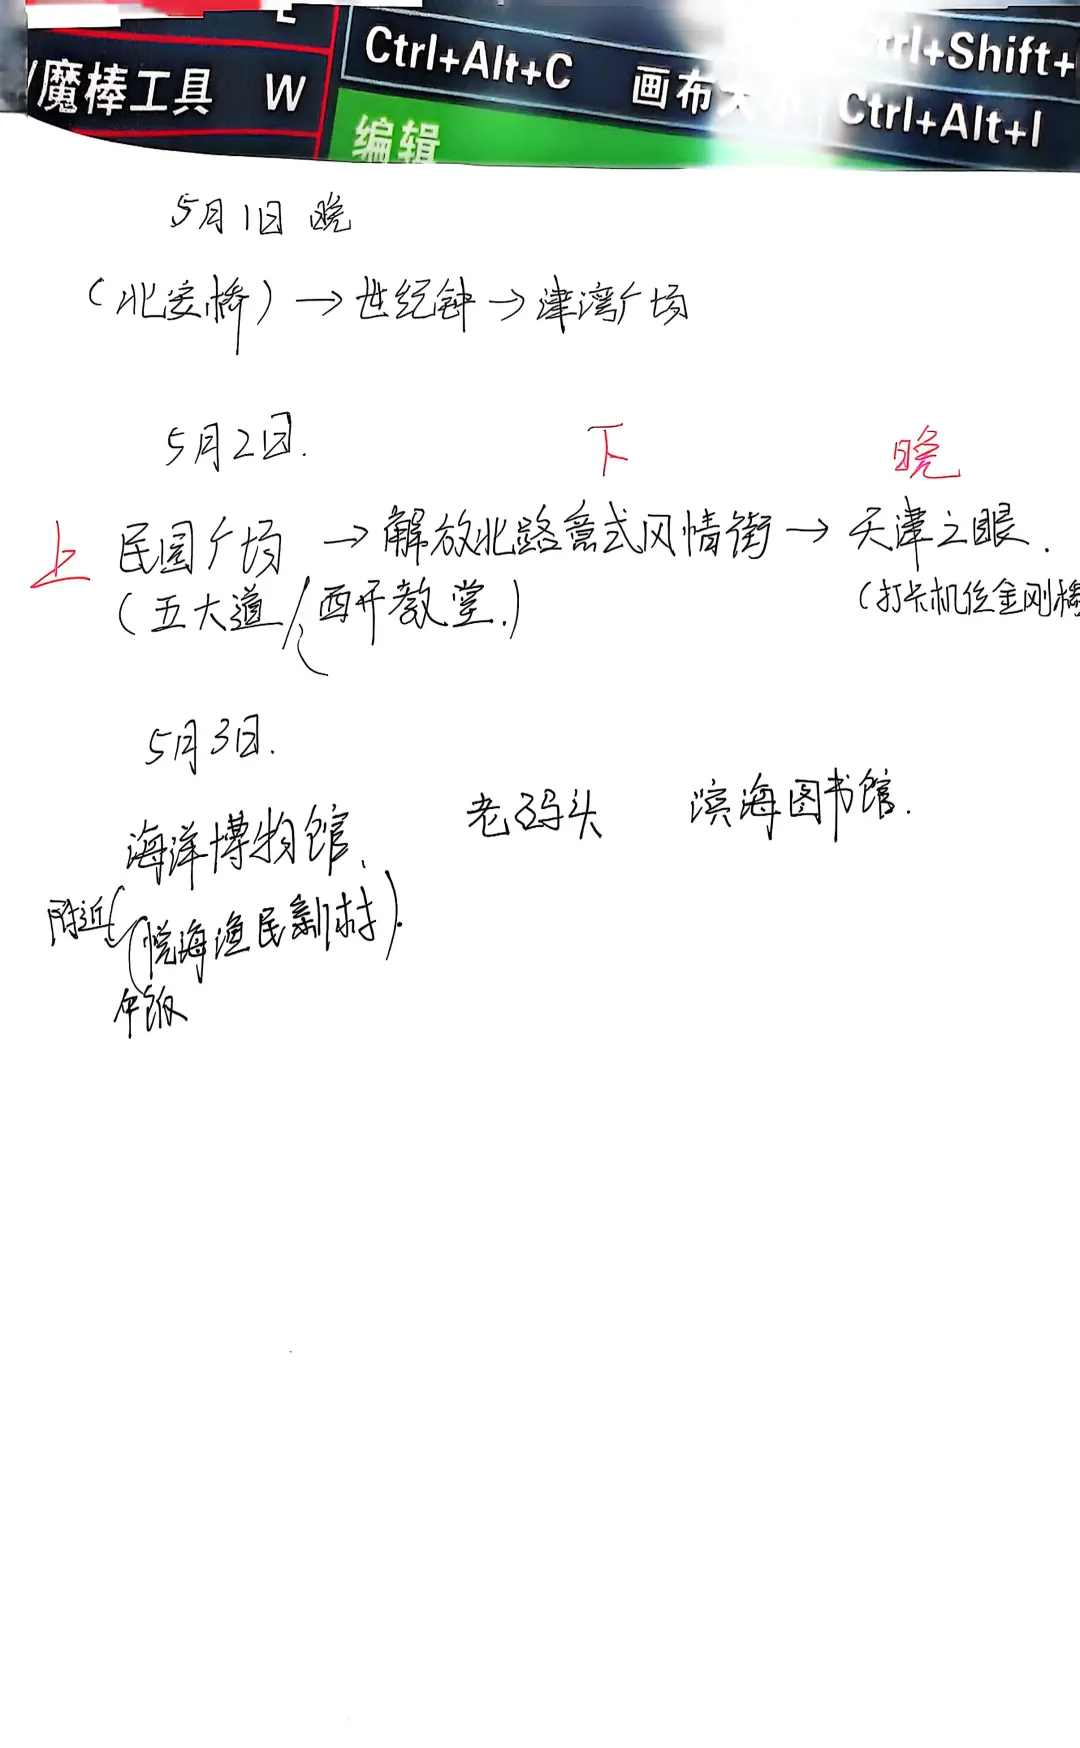 魔棒工具 W
Ctrl+Alt+C 画布大小
Ctrl+Shift+
Ctrl+Alt+I
编辑
5月1日 晚
(北安桥)→世纪钟→津湾广场
5月2日.
下 晚
上 民园广场 →解放北路意式风情街→天津之眼.
(五大道/西开教堂.) (打卡机位金刚桥
5月3日.
海洋博物馆、 老码头 滨海图书馆.
附近(悦海渔民新村).
午饭